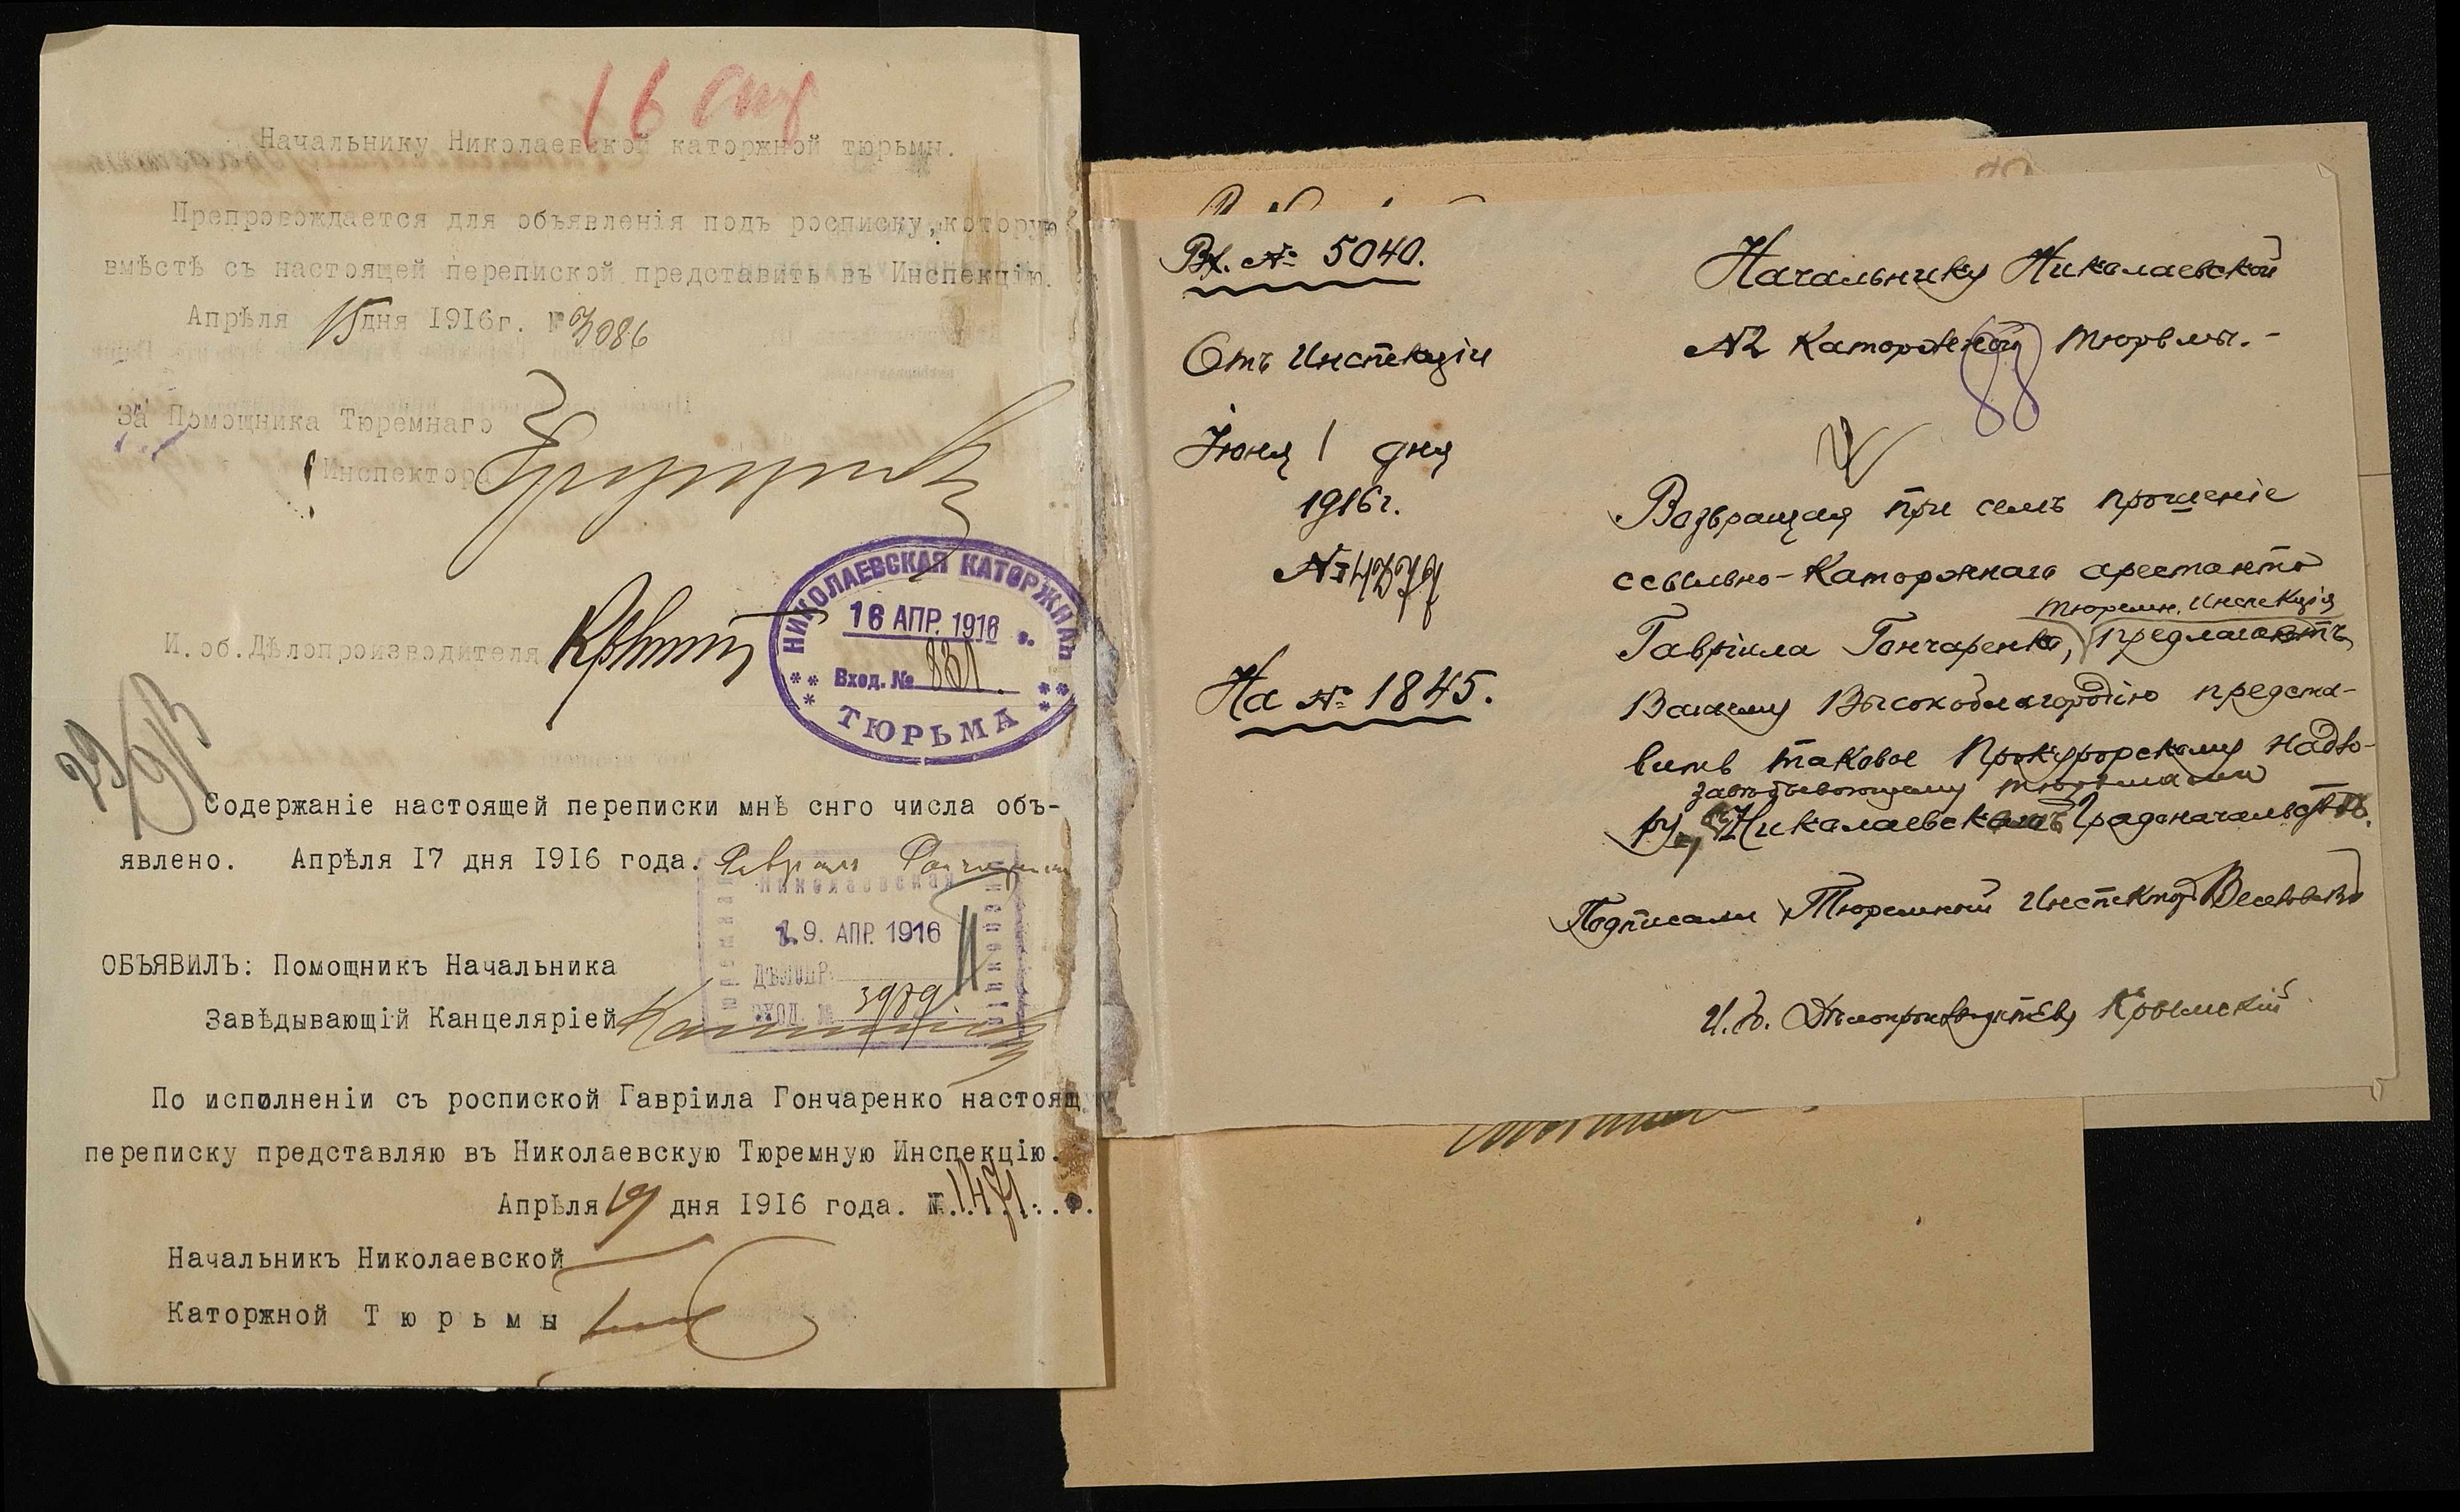 16 апр
Начальнику Николаевской каторжной тюрьмы.
Препровождается для объявленія подъ росписку, которую
вмѣстѣ съ настоящей перепиской представить въ Инспекцію.
Апрѣля 15 дня 1916г. № 3086
За Помощника Тюремнаго
Инспектора
И. об. Дѣлопроизводителя
НИКОЛАЕВСКАЯ КАТОРЖНАЯ
16 АПР. 1916 г.
Вход. № 831
ТЮРЬМА
Содержаніе настоящей переписки мнѣ снго числа объ-
явлено. Апрѣля 17 дня 1916 года.
Николаевская
19. АПР. 1916
ДѢЛОПР.
ВХОД. № 3989
ОБЪЯВИЛЪ: Помощникъ Начальника
Завѣдывающій Канцеляріей
По исполненіи съ роспиской Гавріила Гончаренко настоящую
переписку представляю въ Николаевскую Тюремную Инспекцію.
Апрѣля 19 дня 1916 года. № 1471
Начальникъ Николаевской
Каторжной Тюрьмы
Вх. № 5040.
Отъ Инспекціи
Іюня 1 дня
1916г.
№ 4277
На № 1845.
Начальнику Николаевской
Каторжной тюрьмы.-
88
Возвращая при семъ прошеніе
ссыльно-каторжнаго арестанта
тюремн. Инспекція
Гавріила Гончаренко, предлагаетъ
Вашему Высокоблагородію предста-
вить таковое Прокурорскому надзо-
завѣдывающему тюрьмами
ру, Николаевскаго Градоначальства.
Подписали Тюремный Инспекторъ
И. д. Дѣлопроизводителя Крымскій